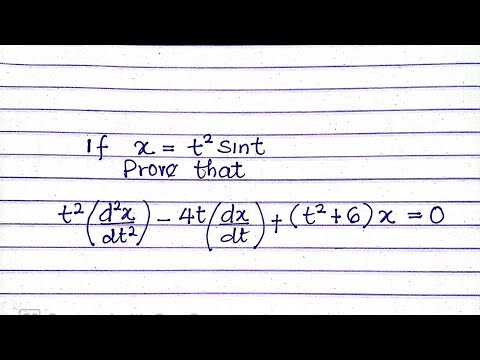 If x = t² sint
Prove that
t² (d²x/dt²) - 4t (dx/dt) + (t² + 6) x = 0